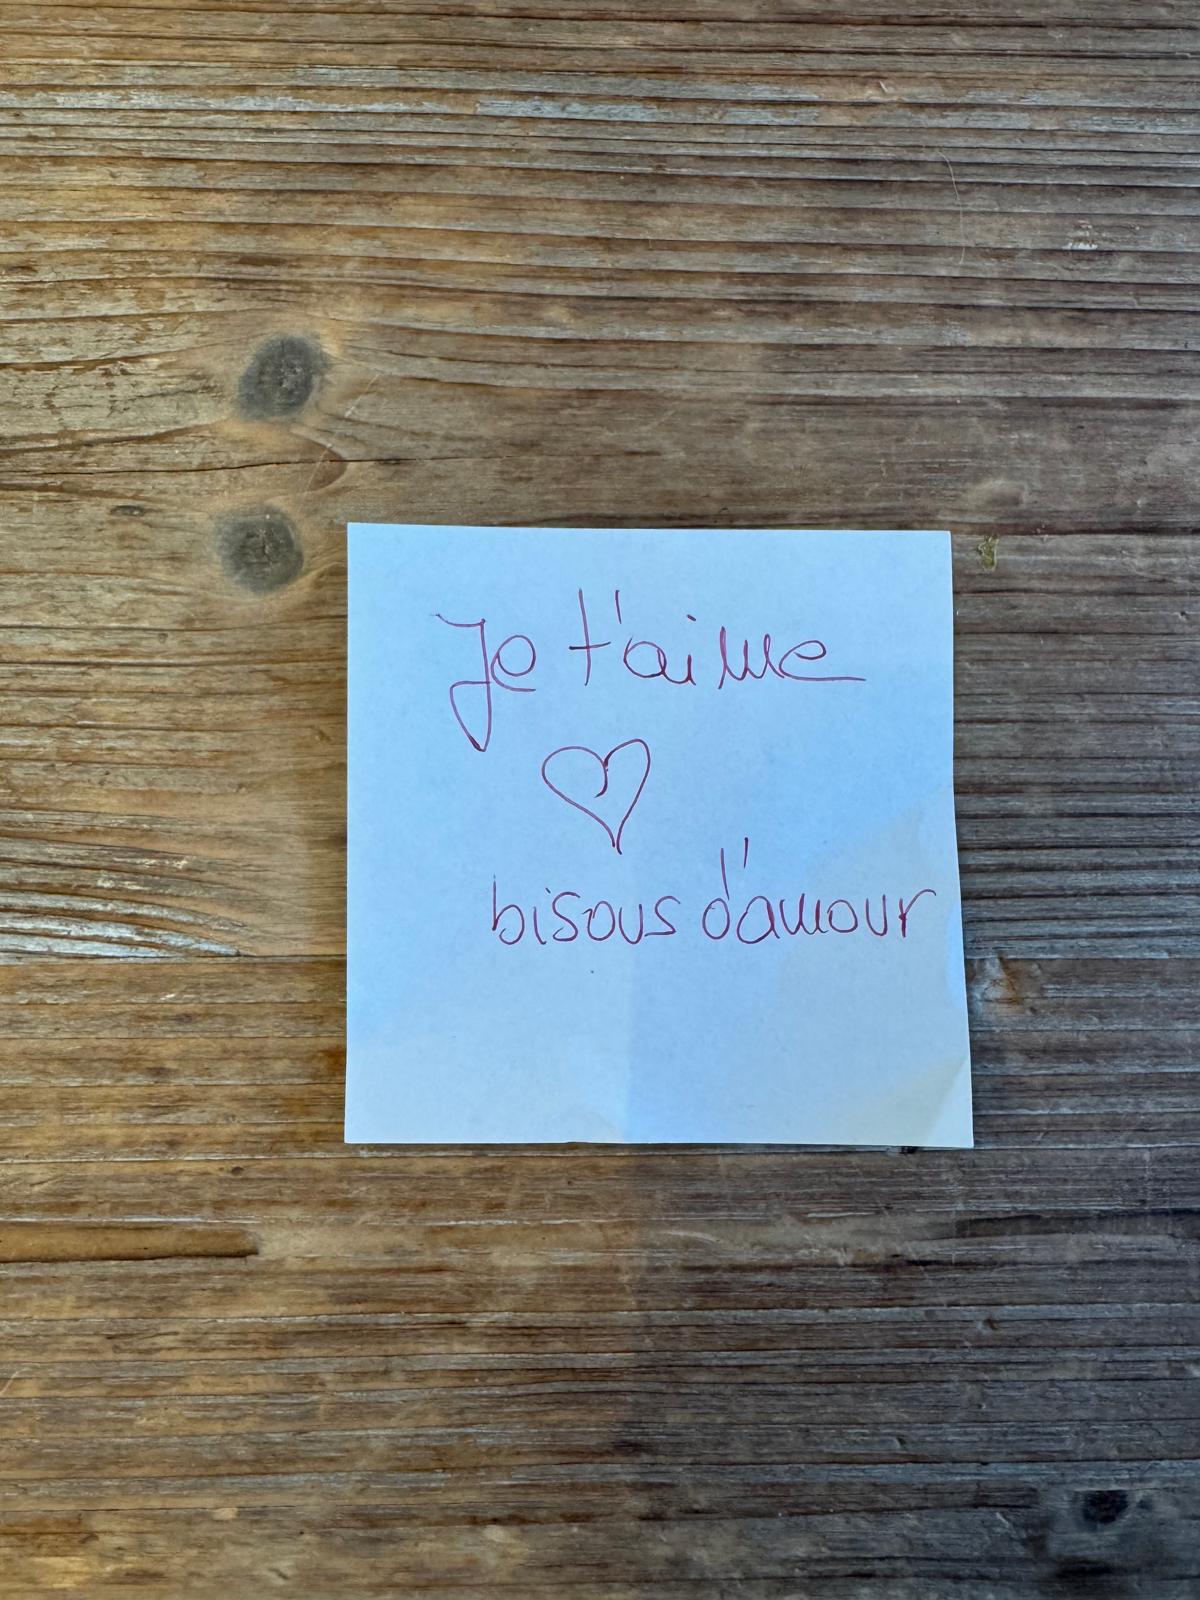 Je t'aime
bisous d'amour